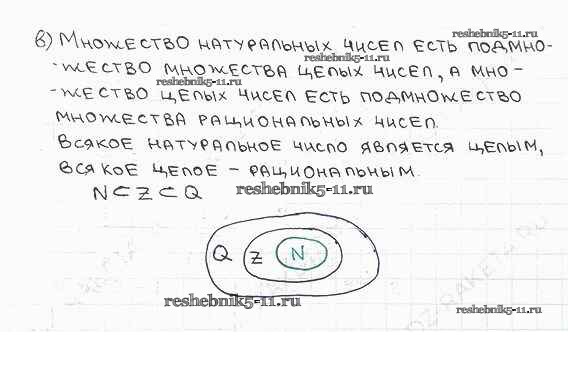 в) Множество натуральных чисел есть подмно-
-жество множества целых чисел, а мно-
-жество целых чисел есть подмножество
множества рациональных чисел.
Всякое натуральное число является целым,
всякое целое – рациональным.
N ⊂ Z ⊂ Q
Q Z N
reshebnik5-11.ru
reshebnik5-11.ru
reshebnik5-11.ru
reshebnik5-11.ru
reshebnik5-11.ru
reshebnik5-11.ru